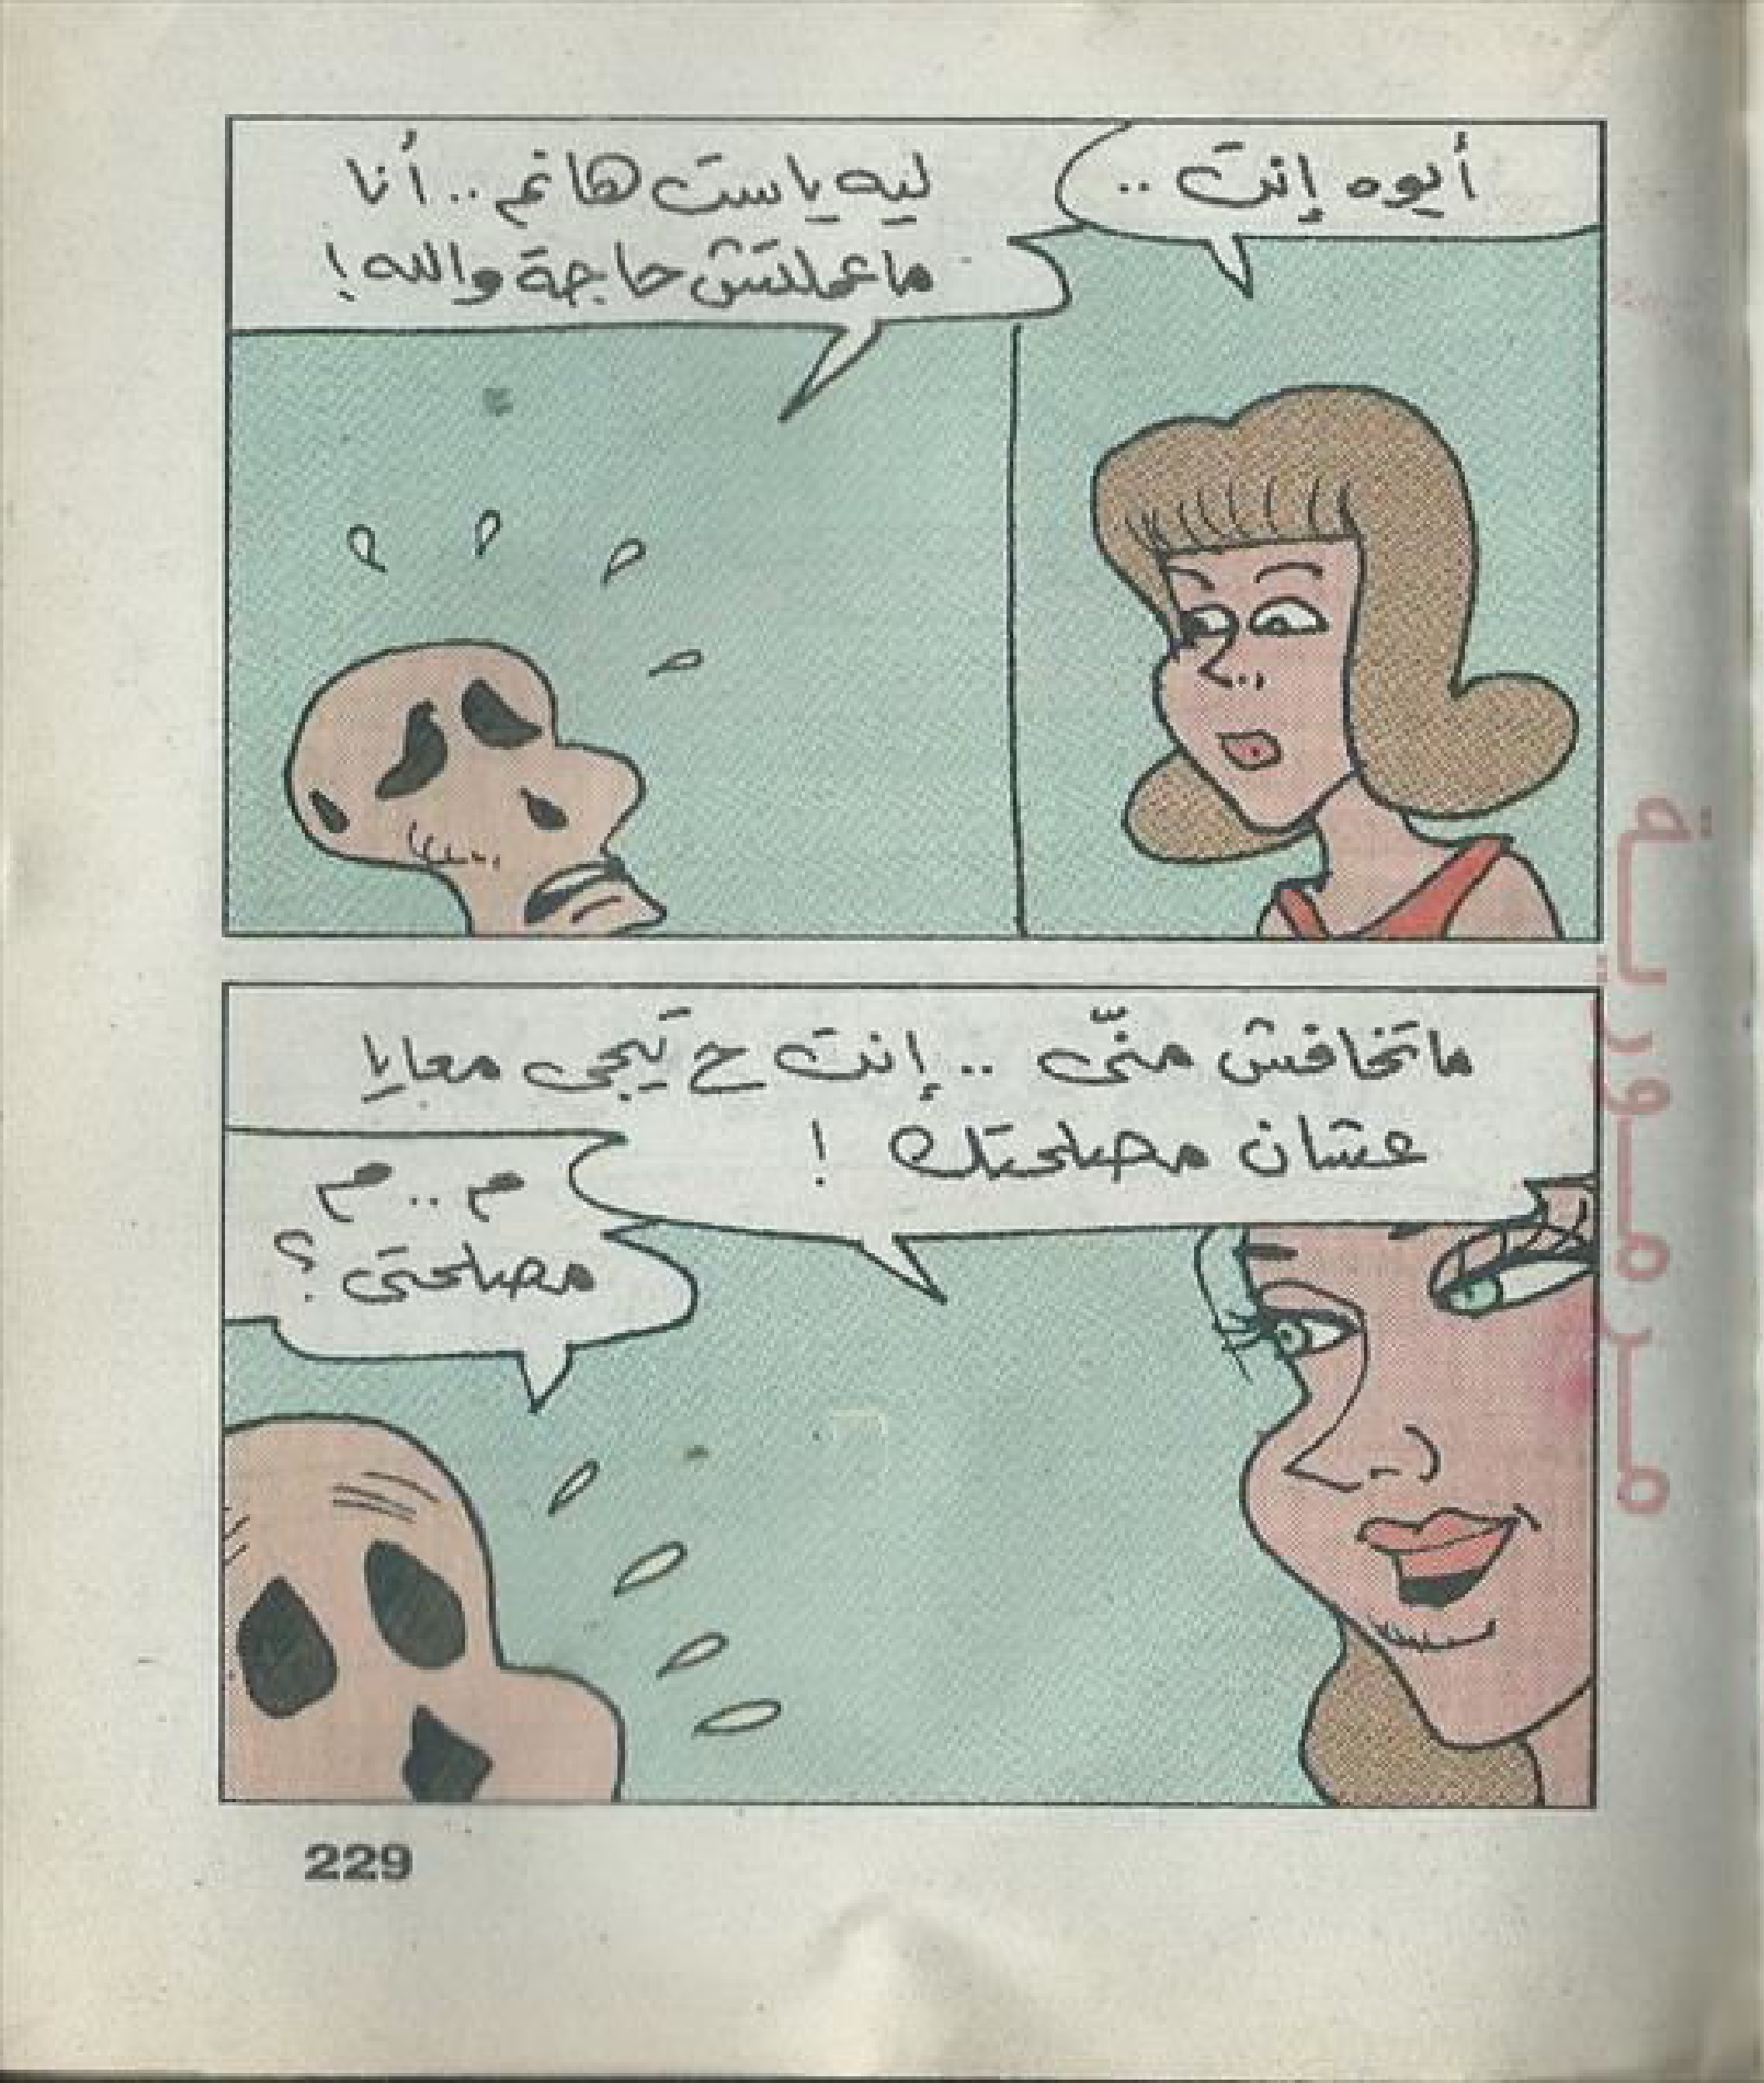 أيوه إنت ..
ليه ياست هانم .. أنا
ماعملتش حاجة والله !
ماتخافش منّى .. إنت ح تَيجى معايا
عشان مصلحتك !
م .. م
مصلحتى ؟
مرمورية
229